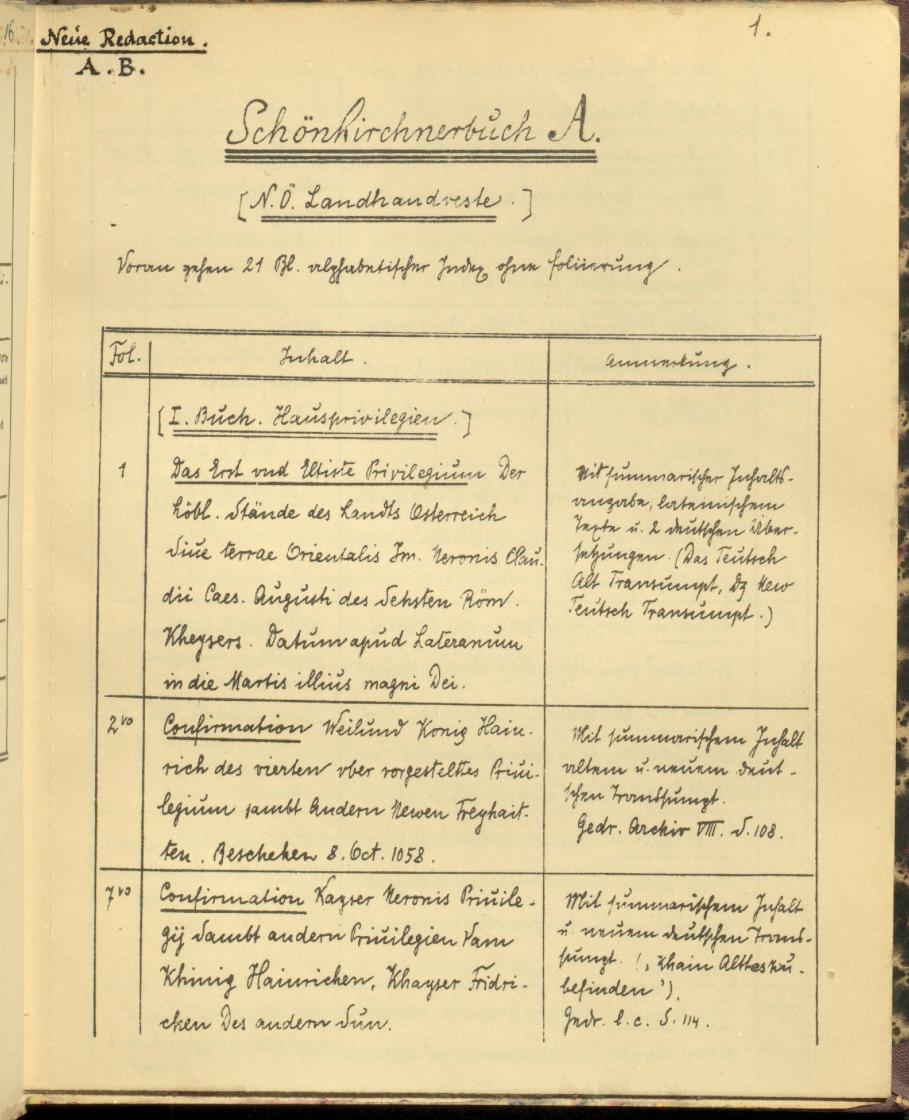 16.
Neue Redaction.
1.
A.B.
Schönkirchnerbuch A.
[N.Ö. Landhandveste.]
Voran gehen 21 Bl. alphabetischer Index ohne foliierung.
Fol. Inhalt. Anmerkung.
[I. Buch. Hausprivilegien.]
1 Das Erst vnd Eltiste Privilegium Der
löbl. Stände des Landts Osterreich
Siue terrae Orientalis Im. Neronis Clau-
dii Caes. Augusti des Sehsten Röm.
Kheysers. Datum apud Lateranum
in die Martis illius magni Dei.
Mit summarischer Inhalts-
angabe, lateinischem
Texte u. 2 deutschen Über-
setzungen. (Das Teutsch
Alt Transumpt, Dz New
Teutsch Transumpt.)
2vo Confirmation Weilund Konig Hain-
rich des vierten vber vorgesteltes Priui-
legium sambt Andern Newen Freyhait-
ten. Bescheken 8. Oct. 1058.
Mit summarischem Inhalt
altem u. neuem deut-
schen Transsumpt.
Gedr. Archiv VIII. S. 108.
7vo Confirmation Kayser Neronis Priuile-
gij Sambt andern Priuilegien Vam
Khinig Hainrichen, Khayser Fridri-
chen Des andern Sun.
Mit summarischem Inhalt
u. neuem deutschen Trans-
sumpt. (, khain Alttes zu-
befinden').
Gedr. l.c. S. 114.